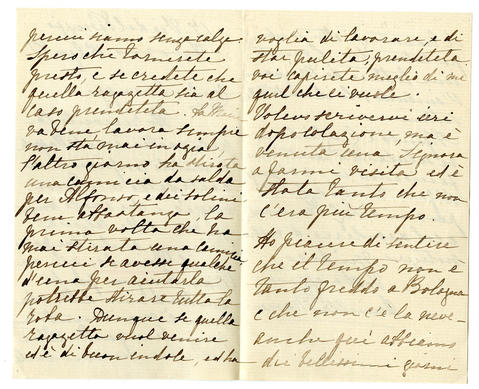 perciò siamo senza calze.
Spero che tornerete
presto, e se credete che
quella ragazzetta sia al
caso prendetela. La
va bene, lavora sempre
non sta mai in ozio,
l'altro giorno ha stirato
una camicia da salda
per Alfonso, e dei solini
bene abbastanza, la
prima volta che ha
mai stirato una camicia
perciò se avesse qualche
d'una per aiutarla
potrebbe stirare tutta la
roba. Dunque se quella
ragazzetta vuol venire
ed è di buon indole, ed ha
voglia di lavorare, e di
star pulita, prendetela
voi capirete meglio di me
quel che ci vuole.
Volevo scrivervi ieri
dopo colazione, ma è
venuta una Signora
a farmi visita ed è
stata tanto che non
c'era più tempo.
Ho piacere di sentire
che il tempo non è
tanto freddo a Bologna
e che non c'è la neve
anche qui abbiamo
dei bellissimi giorni